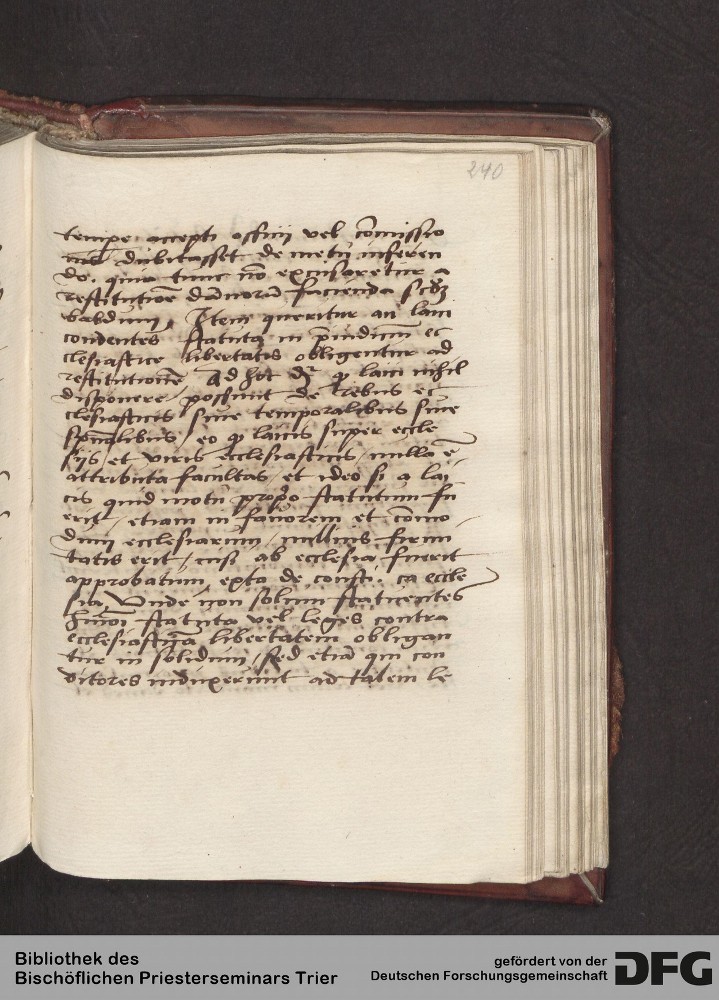 240
tempe accepti officij vel cōmissio
nis dubitasset de metu inferen
do. quia tunc nō excusaretur a
restitutiōe dānorū facienda scdȝ
Item queritur an laici
condentes statuta in p̄iudiciū ec
clesiastice libertatis obligentur ad
restitutionē Ad hoc dr̄ qͩ laici nihil
disponere possunt de rebus ec
clesiasticis siue temporalibus siue
sp̄ualibus / eo qͩ laicis super eccle
sijs et viris ecclesiasticis / nulla ē
attributa facultas / et ideo si a lai
cis quid motu proprio statutum fu
erit / etiam in fauorem et cōmo
dum ecclesiarum / nullius firmi
tatis erit / nisi ab ecclesia fuerit
approbatum, exͭͣ de consti. ca eccle
sia, Vnde non solum statuentes
hmōi statuta vel leges contra
ecclesiasticā libertatem obligan
tur in solidum / sed etiā qui con
ditores induxerunt ad talem le
Bibliothek des
Bischöflichen Priesterseminars Trier
gefördert von der
Deutschen Forschungsgemeinschaft
DFG